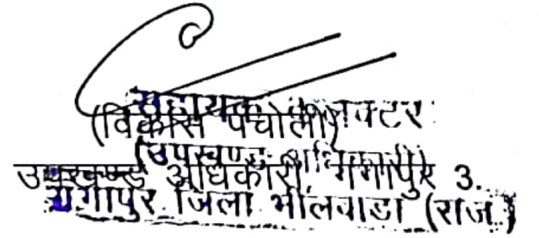 सहायक कलक्टर
(विकास पंचोली)
(उपखण्ड अधिकारी)
उपखण्ड अधिकारी, गंगापुर 3.
गंगापुर जिला भीलवाडा (राज.)